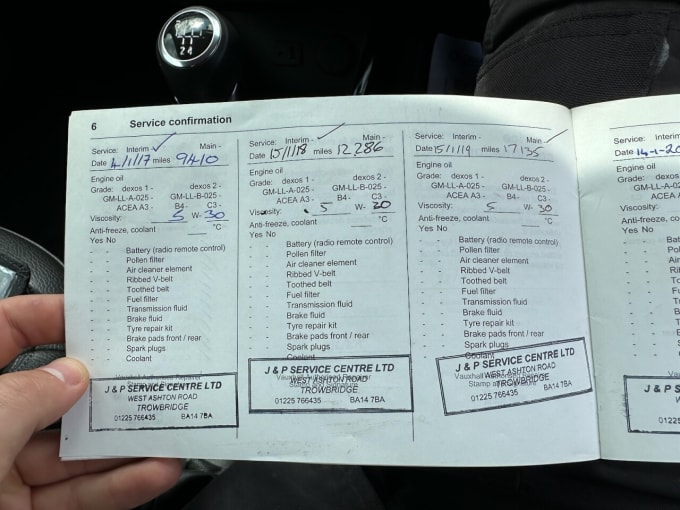 6 Service confirmation
Service: Interim - ✓ Main -
Date 4/1/17 miles 9410
Engine oil
Grade: dexos 1 - dexos 2 -
GM-LL-A-025 - GM-LL-B-025 -
ACEA A3 - B4 - C3 -
Viscosity: 5 W- 30
Anti-freeze, coolant °C
Yes No
- - Battery (radio remote control)
- - Pollen filter
- - Air cleaner element
- - Ribbed V-belt
- - Toothed belt
- - Fuel filter
- - Transmission fluid
- - Brake fluid
- - Tyre repair kit
- - Brake pads front / rear
- - Spark plugs
- - Coolant
J & P SERVICE CENTRE LTD
WEST ASHTON ROAD
TROWBRIDGE
01225 766435 BA14 7BA
Service: Interim - ✓ Main -
Date 15/1/18 miles 12286
Engine oil
Grade: dexos 1 - dexos 2 -
GM-LL-A-025 - GM-LL-B-025 -
ACEA A3 - B4 - C3 -
Viscosity: 5 W- 30
Anti-freeze, coolant °C
Yes No
- - Battery (radio remote control)
- - Pollen filter
- - Air cleaner element
- - Ribbed V-belt
- - Toothed belt
- - Fuel filter
- - Transmission fluid
- - Brake fluid
- - Tyre repair kit
- - Brake pads front / rear
- - Spark plugs
- - Coolant
J & P SERVICE CENTRE LTD
WEST ASHTON ROAD
TROWBRIDGE
01225 766435 BA14 7BA
Service: Interim - Main - ✓
Date 15/1/19 miles 17135
Engine oil
Grade: dexos 1 - dexos 2 -
GM-LL-A-025 - GM-LL-B-025 -
ACEA A3 - B4 - C3 -
Viscosity: 5 W- 30
Anti-freeze, coolant °C
Yes No
- - Battery (radio remote control)
- - Pollen filter
- - Air cleaner element
- - Ribbed V-belt
- - Toothed belt
- - Fuel filter
- - Transmission fluid
- - Brake fluid
- - Tyre repair kit
- - Brake pads front / rear
- - Spark plugs
- - Coolant
J & P SERVICE CENTRE LTD
WEST ASHTON ROAD
TROWBRIDGE
01225 766435 BA14 7BA
Service: Interim
Date 14-1-20
Engine oil
Grade: dexos
GM-LL-A-0
ACEA A3
Viscosity:
Anti-freeze, co
Yes No
J & P S
01225